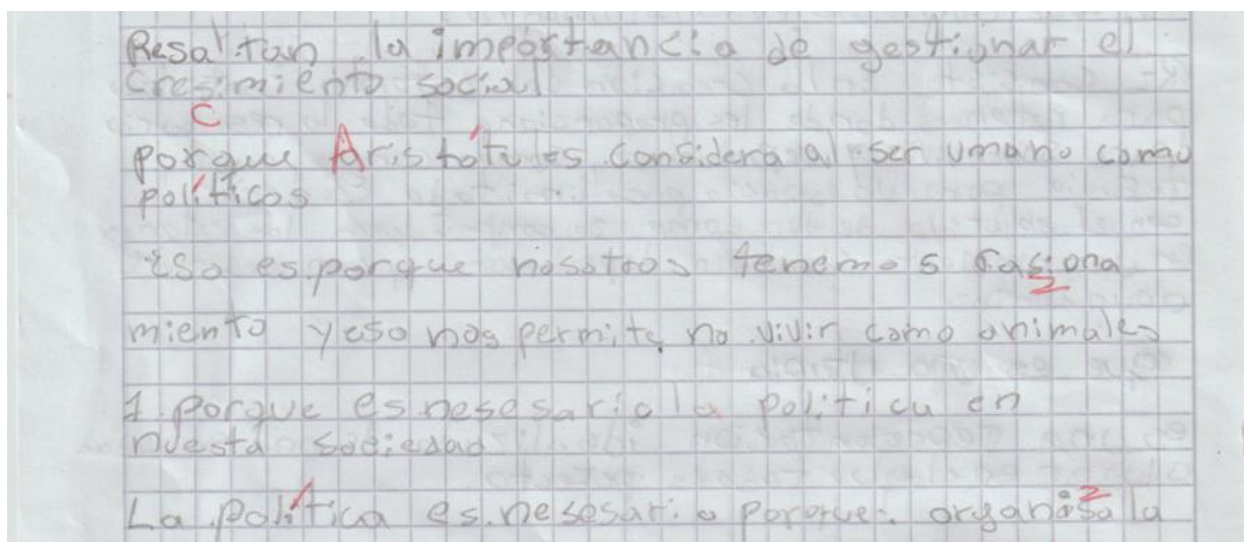 Resaltan la importancia de gestignar el
cresimiento social
C
porque Aristóteles considera al ser umano como
políticos
eso es porque nosotros tenemos rasiona
z
miento y eso nos permite no vivir como animales
1 porque es nesesario la politica en
nuesta sociedad
La política es nesesario pororque organisa la
z